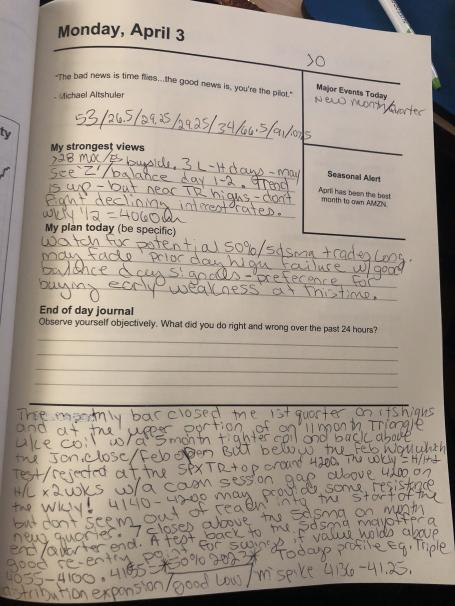 Monday, April 3
"The bad news is time flies...the good news is, you're the pilot."
- Michael Altshuler
53/26.5/29.25/29.25/34/66.5/91/
30
Major Events Today
New month/quarter
My strongest views
>28 MOC/ES buyside. 3 L-H days - may
see 'Z'/balance day 1-2. Trend
is up - but near TR highs - don't
fight declining interest rates.
wkly 1/2 = 4060
Seasonal Alert
April has been the best
month to own AMZN.
My plan today (be specific)
Watch for potential 50%/5dsma trades long.
may fade prior day high failure w/good
balance day signals - preference for
buying early weakness at this time.
End of day journal
Observe yourself objectively. What did you do right and wrong over the past 24 hours?
The monthly bar closed the 1st quarter on its highs
and at the upper portion of an 11 month Triangle
like coil w/a 5 month tighter coil and back above
the Jan. close/Feb open But below the Feb high which
Test/rejected at the SPX TR top around 4200. The wkly =H/Hd
H/L x2wks w/a cash session gap above 4200 on
the wkly! 4140-4200 may provide some resistance
but dont seem out of reach into the start of the
new quarter. 7 closes above the 5dsma on month
end/quarter end. A test back to the 5dsma may offer a
good re-entry point for swings, if value holds above
4055-4100. 4185 50% 2022 Todays profile Eg. Triple
distribution expansion/good low/m spike 4136-41.25.